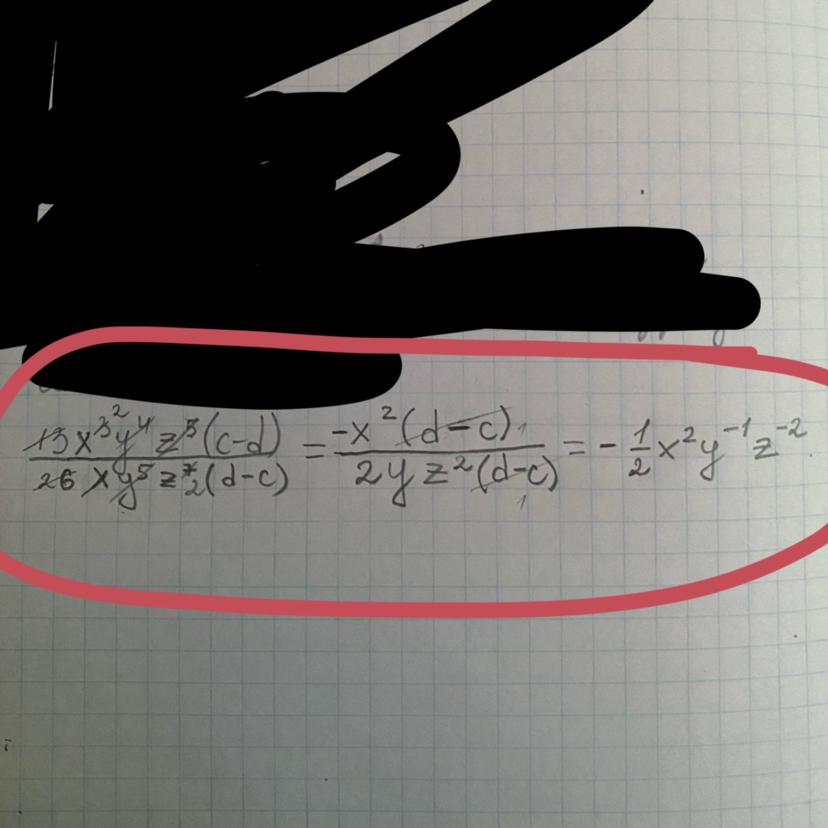 13x³y⁴z⁵(c-d)/26xy⁵z⁷(d-c) = -x²(d-c)/2yz²(d-c) = -1/2x²y⁻¹z⁻²